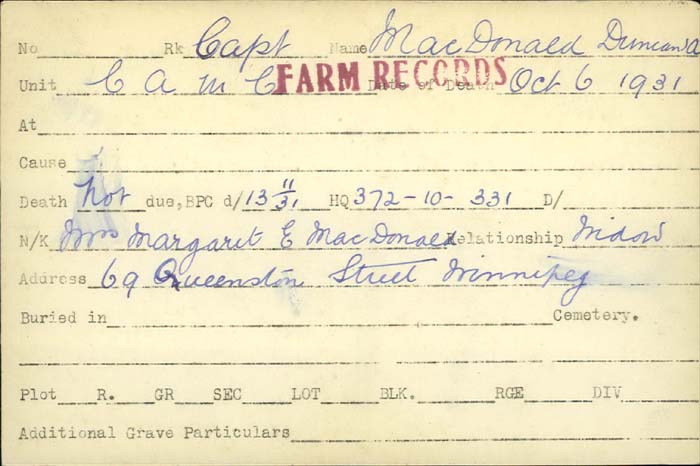 No Rk Capt Name MacDonald Duncan A
Unit C A M C FARM RECORDS Date of Death Oct 6 1931
At
Cause
Death not due, BPC d/ 13 11/31 HQ 372-10-331 D/
N/K Mrs Margaret E MacDonald Relationship Widow
Address 69 Queenston Street Winnipeg
Buried in Cemetery.
Plot R. GR SEC LOT BLK. RGE DIV
Additional Grave Particulars